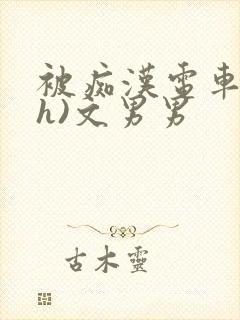 被痴漢電車
h)文男男
古木靈